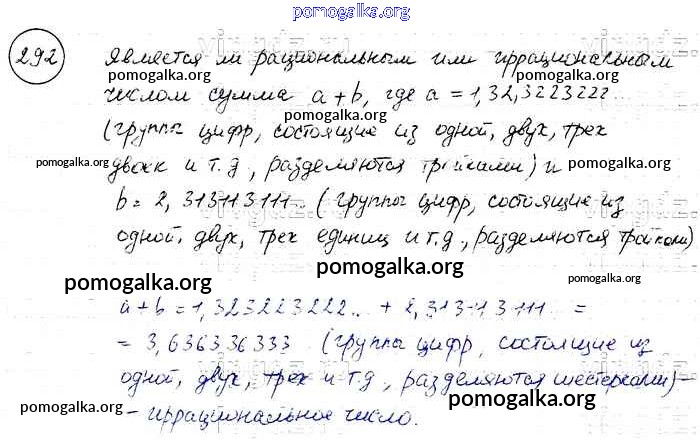 pomogalka.org
292 Является ли рациональным или иррациональным
pomogalka.org pomogalka.org
числом сумма a+b, где a=1,32,3223222...
pomogalka.org
(группы цифр, состоящие из одной, двух, трех
pomogalka.org pomogalka.org
двоек и т.д, разделяются тройками) и
b=2,313113111... (группы цифр, состоящие из
одной, двух, трех единиц и т.д, разделяются тройками)
pomogalka.org pomogalka.org
a+b=1,323223222... + 2,313113111... =
= 3,636336333 (группы цифр, состоящие из
одной, двух, трех и т.д, разделяются шестерками)-
pomogalka.org pomogalka.org
- иррациональное число.